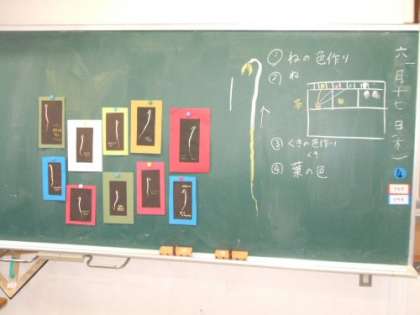 六月十七日(木)
① ねの色作り
② ね
③ くきの色作り
くき
④ 葉の色